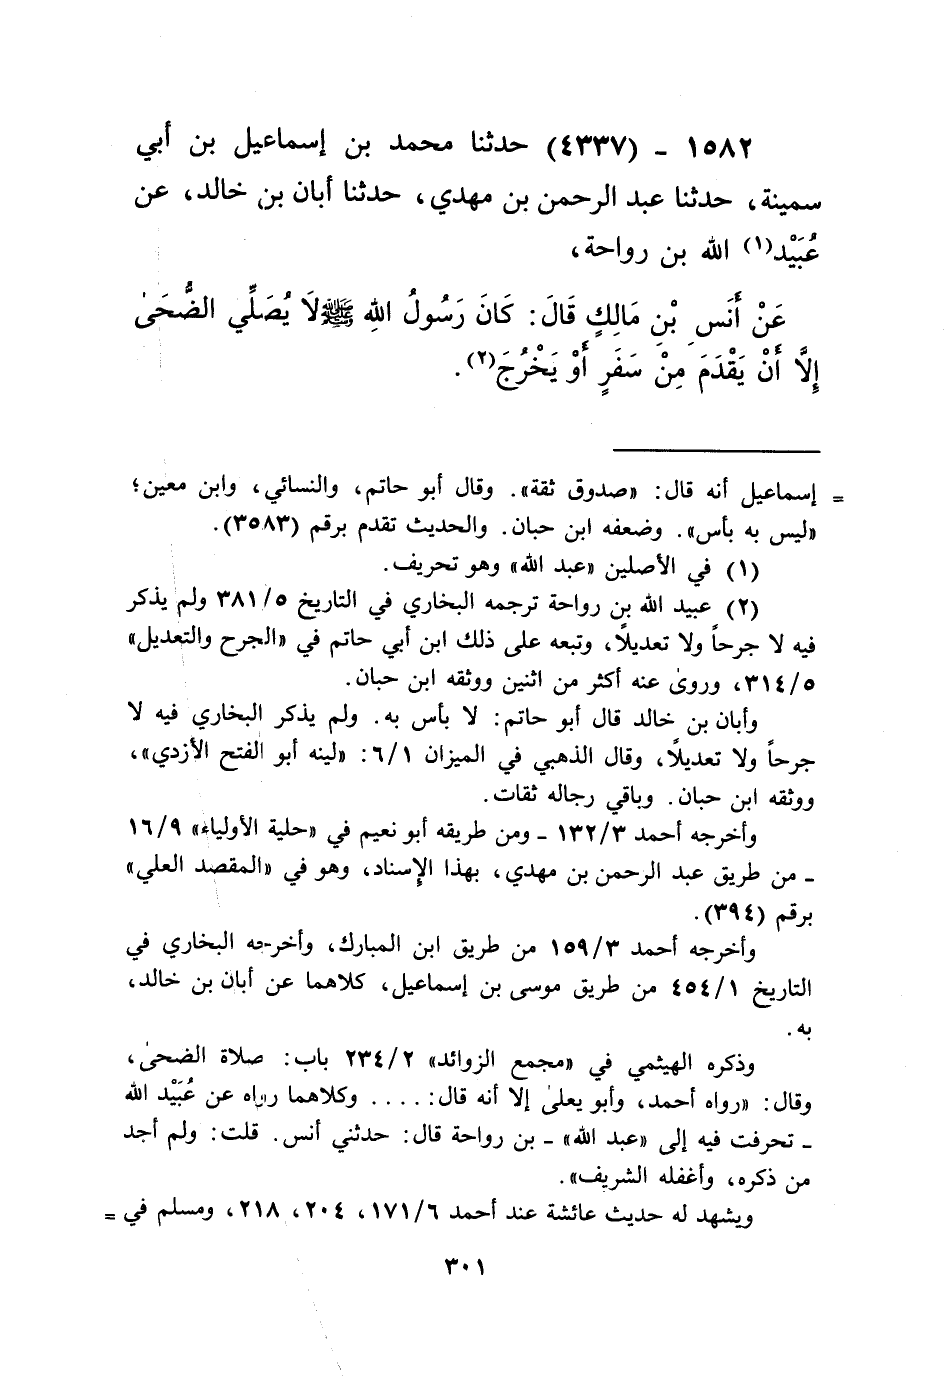 ١٥٨٢ ـ (٤٣٣٧) حدثنا محمد بن إسماعيل بن أبي
سمينة، حدثنا عبد الرحمن بن مهدي، حدثنا أبان بن خالد، عن
عُبَيْد(١) الله بن رواحة،
عَنْ أَنَسِ بْنِ مَالِكٍ قَالَ: كَانَ رَسُولُ اللهِ ﷺ لَا يُصَلِّي الضُّحَىٰ
إِلَّا أَنْ يَقْدَمَ مِنْ سَفَرٍ أَوْ يَخْرُجَ(٢).
= إسماعيل أنه قال: «صدوق ثقة». وقال أبو حاتم، والنسائي، وابن معين؛
«ليس به بأس». وضعفه ابن حبان. والحديث تقدم برقم (٣٥٨٣).
(١) في الأصلين «عبد الله» وهو تحريف.
(٢) عبيد الله بن رواحة ترجمه البخاري في التاريخ ٣٨١/٥ ولم يذكر
فيه لا جرحاً ولا تعديلاً، وتبعه على ذلك ابن أبي حاتم في «الجرح والتعديل»
٣١٤/٥، وروىٰ عنه أكثر من اثنين ووثقه ابن حبان.
وأبان بن خالد قال أبو حاتم: لا بأس به. ولم يذكر البخاري فيه لا
جرحاً ولا تعديلاً، وقال الذهبي في الميزان ٦/١: «لينه أبو الفتح الأزدي»،
ووثقه ابن حبان. وباقي رجاله ثقات.
وأخرجه أحمد ١٣٢/٣ ـ ومن طريقه أبو نعيم في «حلية الأولياء» ١٦/٩
ـ من طريق عبد الرحمن بن مهدي، بهذا الإسناد، وهو في «المقصد العلي»
برقم (٣٩٤).
وأخرجه أحمد ١٥٩/٣ من طريق ابن المبارك، وأخرجه البخاري في
التاريخ ٤٥٤/١ من طريق موسى بن إسماعيل، كلاهما عن أبان بن خالد،
به.
وذكره الهيثمي في «مجمع الزوائد» ٢٣٤/٢ باب: صلاة الضحىٰ،
وقال: «رواه أحمد، وأبو يعلىٰ إلا أنه قال: .... وكلاهما رواه عن عُبَيْد الله
ـ تحرفت فيه إلى «عبد الله» ـ بن رواحة قال: حدثني أنس. قلت: ولم أجد
من ذكره، وأغفله الشريف».
ويشهد له حديث عائشة عند أحمد ١٧١/٦، ٢٠٤، ٢١٨، ومسلم في =
٣٠١